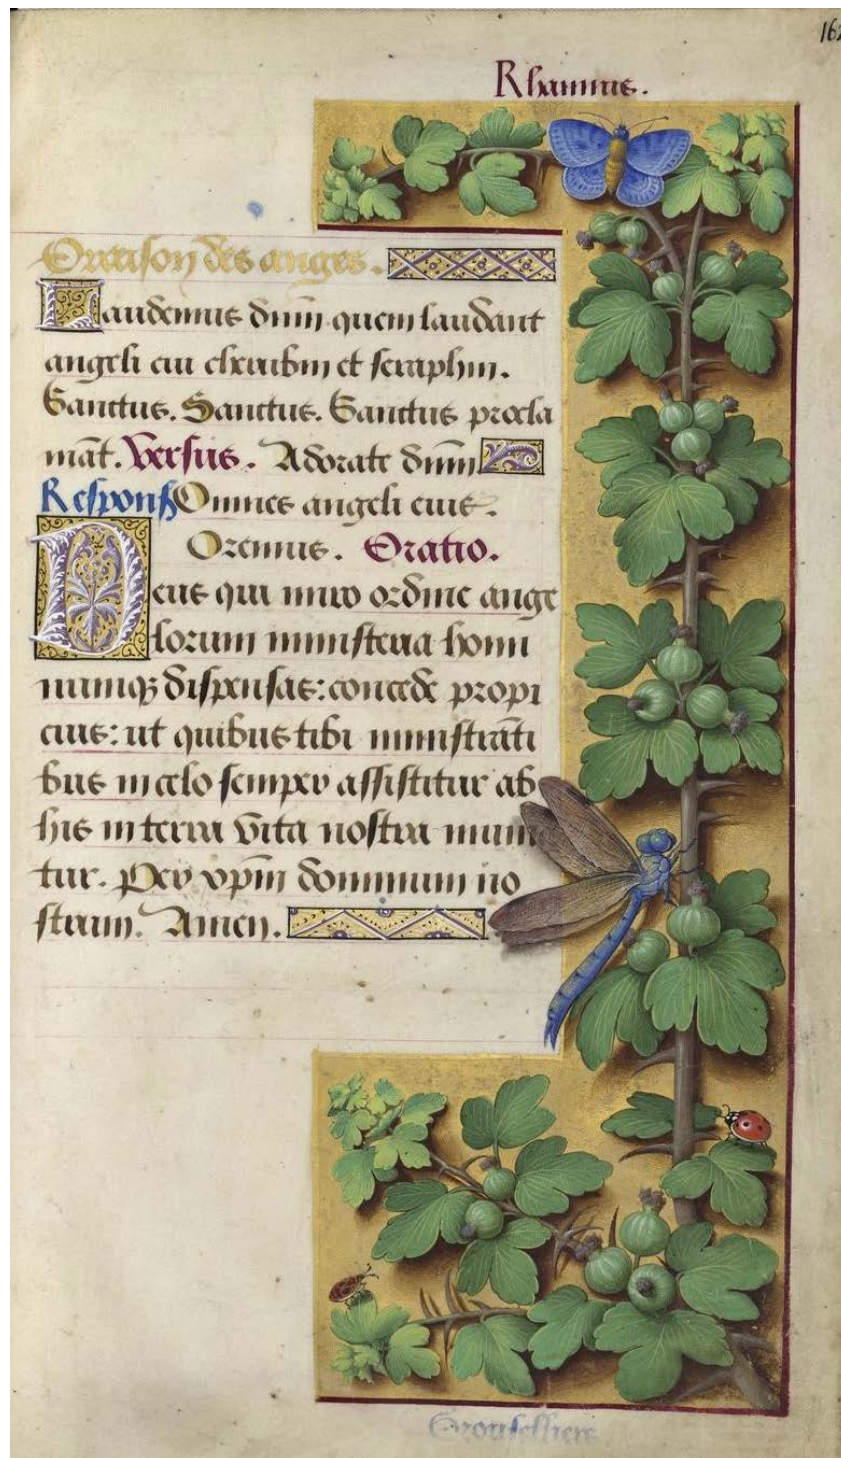 162
Rhamnus.
Oraison des anges.
Laudemus dnm̄ quem laudant
angeli cui cherubin et seraphin.
Sanctus. Sanctus. Sanctus procla
māt. Versus. Adorate dnm̄
Respons Omnes angeli eius.
Oremus. Oratio.
Deus qui miro ordine ange
lorum ministeria homi
numqꝫ dispensas: concede propi
cius: ut quibus tibi ministrāti
bus in celo semper assistitur ab
his in terra vita nostra muni
tur. Per xp̄m dominum no
strum. Amen.
Grouselliere